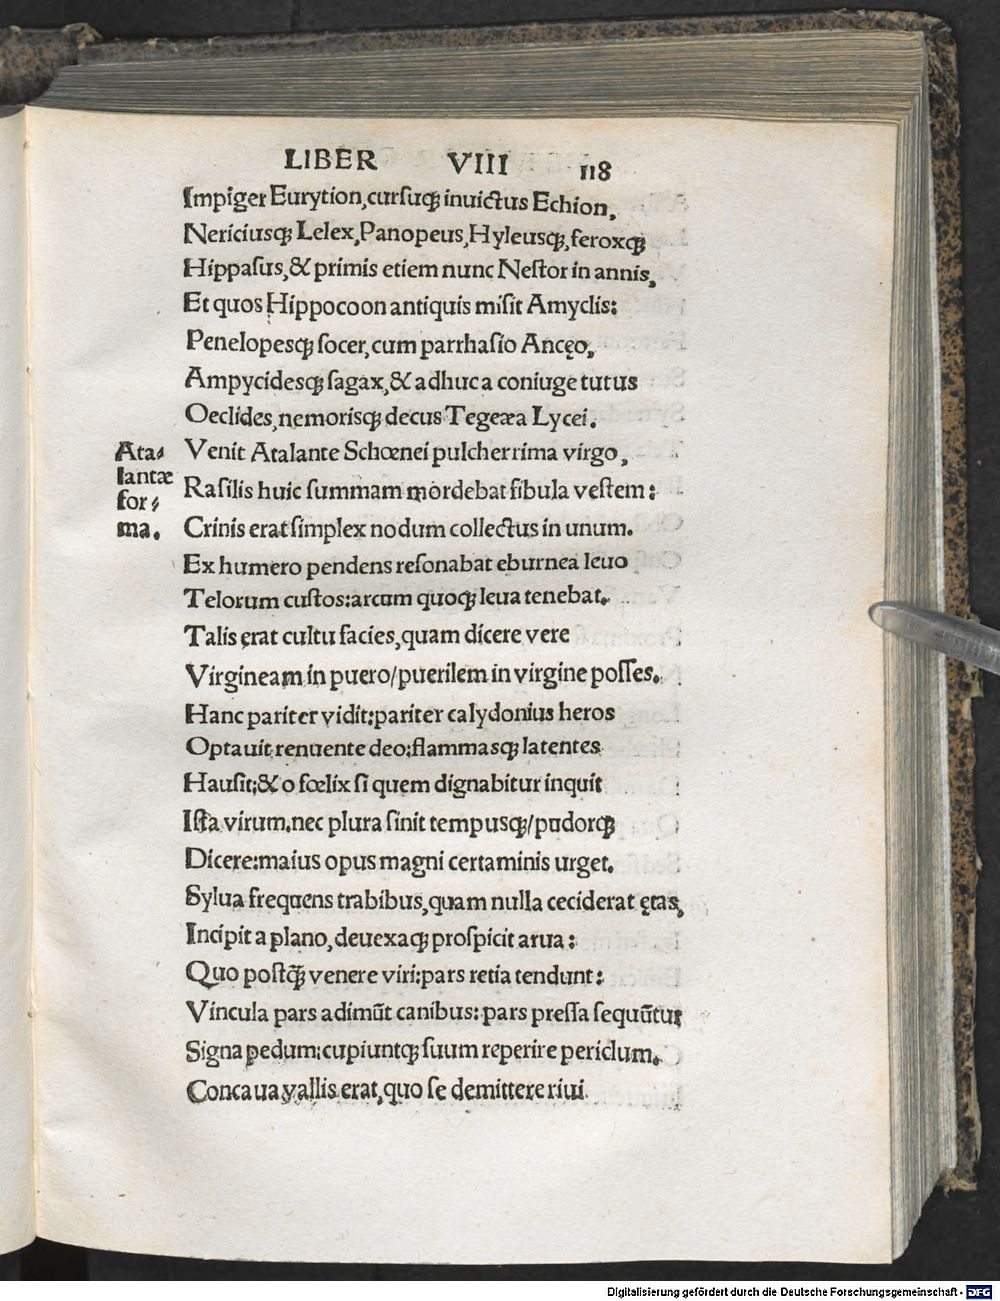 LIBER VIII 118
Impiger Eurytion, cursuqꝫ inuictus Echion,
Nericiusqꝫ Lelex, Panopeus, Hyleusqꝫ, feroxqꝫ
Hippasus, & primis etiem nunc Nestor in annis,
Et quos Hippocoon antiquis misit Amyclis:
Penelopesqꝫ socer, cum parrhasio Ancęo,
Ampycidesqꝫ sagax, & adhuc a coniuge tutus
Oeclides, nemorisqꝫ decus Tegeæa Lycei.
Venit Atalante Schœnei pulcherrima virgo,
Rasilis huic summam mordebat fibula vestem:
Crinis erat simplex nodum collectus in unum.
Ex humero pendens resonabat eburnea leuo
Telorum custos: arcum quoqꝫ leua tenebat.
Talis erat cultu facies, quam dicere vere
Virgineam in puero/puerilem in virgine posses.
Hanc pariter vidit: pariter calydonius heros
Optauit renuente deo: flammasqꝫ latentes
Hausit; & o fœlix si quem dignabitur inquit
Ista virum. nec plura sinit tempusqꝫ/pudorqꝫ
Dicere: maius opus magni certaminis urget.
Sylua frequens trabibus, quam nulla ceciderat ętas,
Incipit a plano, deuexaqꝫ prospicit arua:
Quo postq̃ venere viri: pars retia tendunt:
Vincula pars adimũt canibus: pars pressa sequũtur
Signa pedum: cupiuntqꝫ suum reperire periclum.
Concaua vallis erat, quo se demittere riui
Ata-
lantæ
for-
ma.
Digitalisierung gefördert durch die Deutsche Forschungsgemeinschaft - DFG